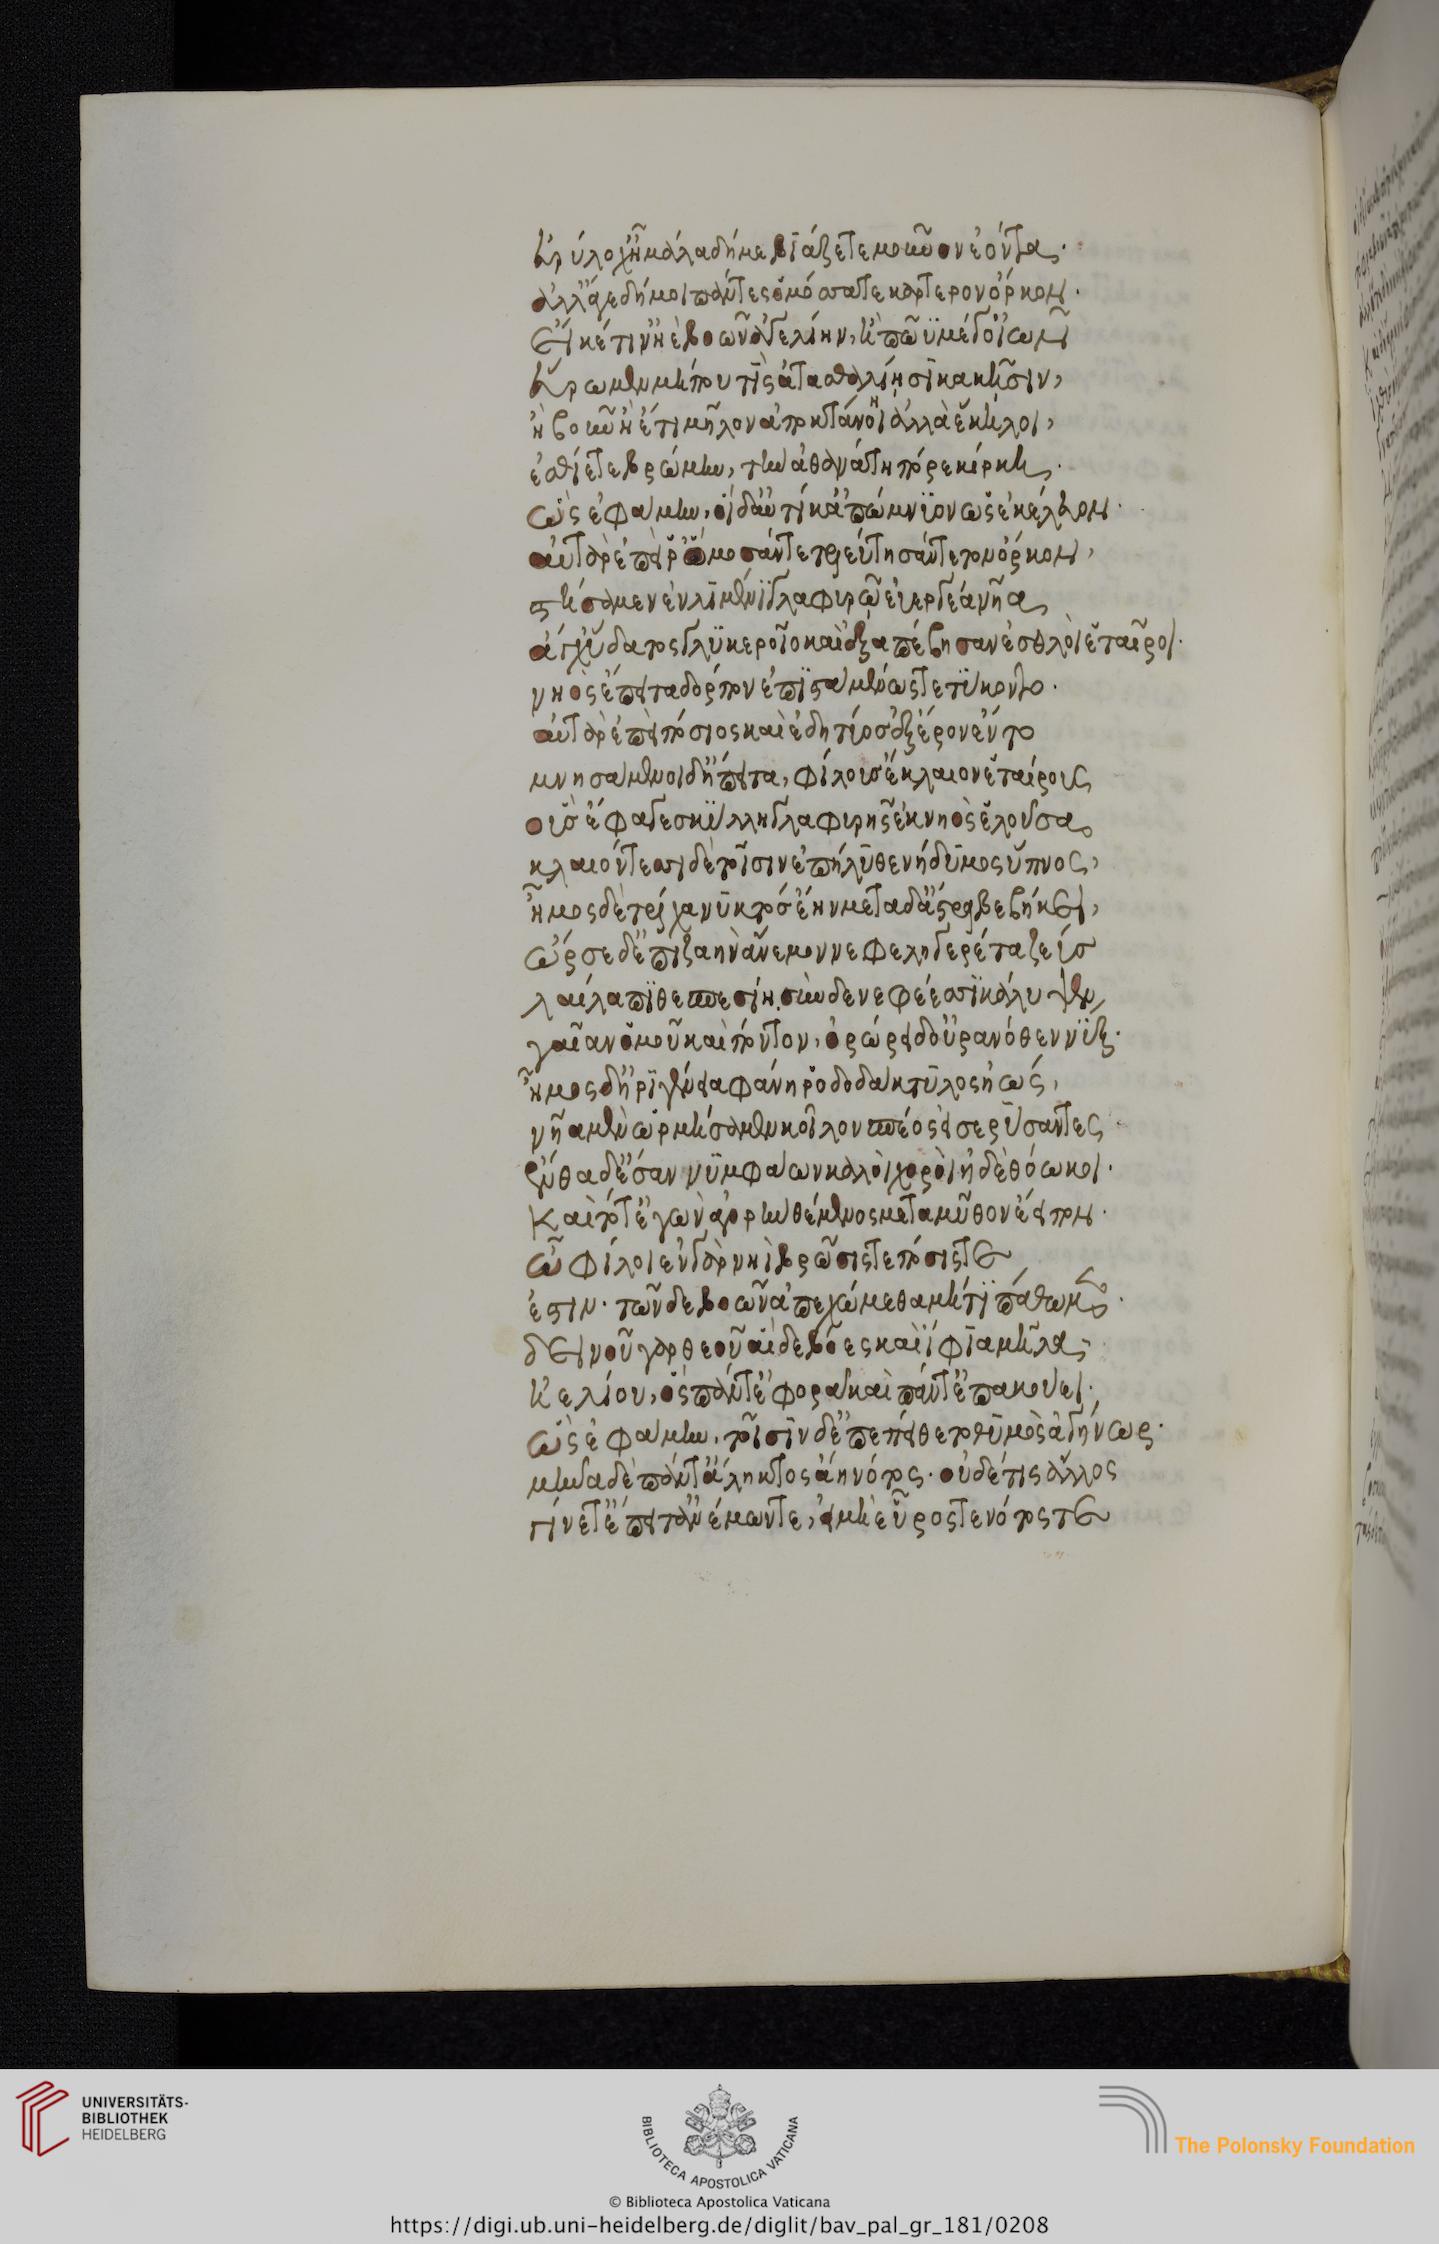 εὐρύλοχ' ἦ μάλα δή με βιάζετε μοῦνον ἐόντα.
ἀλλ' ἄγε δή μοι πάντες ὀμόσσατε καρτερὸν ὅρκον.
εἴ κέ τιν' ἠὲ βοῶν ἀγέλην, ἢ πῶϋ μέγ' οἰῶν
εὕρωμεν μή που τὶς ἀτασθαλίῃσι κακῇσιν,
ἢ βοῦν ἠέ τι μῆλον ἀποκτάνοι ἀλλὰ ἔκηλοι,
ἐσθίετε βρώμην, τὴν ἀθανάτη πόρε κίρκη.
ὣς ἐφάμην, οἱ δ' αὐτίκ' ἀπώμνυον ὡς ἐκέλευον.
αὐτὰρ ἐπεί ῥ' ὄμοσάν τε τελεύτησάν τε τὸν ὅρκον,
στήσαμεν ἐν λιμένι γλαφυρῷ εὐεργέα νῆα
ἄγχ' ὕδατος γλυκεροῖο καὶ ἐξαπέβησαν ἐσθλοὶ ἑταῖροι.
νηὸς ἔπειτα δόρπον ἐπισταμένως τετύκοντο.
αὐτὰρ ἐπεὶ πόσιος καὶ ἐδητύος ἐξ ἔρον ἕντο
μνησάμενοι δὴ ἔπειτα, φίλους ἔκλαιον ἑταίρους
οὓς ἔφαγε σκύλλη γλαφυρῆς ἐκ νηὸς ἑλοῦσα
κλαιόντεσσι δὲ τοῖσιν ἐπήλυθε νήδυμος ὕπνος,
ἦμος δὲ τρίχα νυκτὸς ἔην μετὰ δ' ἄστρα βεβήκει,
ὦρσε δ' ἔπι ζαῆν ἄνεμον νεφεληγερέτα ζεὺς
λαίλαπι θεσπεσίῃ, σὺν δὲ νεφέεσσι κάλυψεν
γαῖαν ὁμοῦ καὶ πόντον, ὀρώρει δ' οὐρανόθεν νύξ.
ἦμος δ' ἠριγένεια φάνη ῥοδοδάκτυλος ἠώς,
νῆα μὲν ὡρμήσαμεν κοῖλον σπέος εἰσερύσαντες
ἔνθα δ' ἔσαν νυμφάων καλοὶ χοροὶ ἠδὲ θόωκοι.
Καὶ τότ' ἐγὼν ἀγορὴν θέμενος μετὰ μῦθον ἔειπον.
ὦ φίλοι ἐν γὰρ νηὶ βρῶσίς τε πόσις τε
ἐστιν. τῶν δε βοῶν ἀπεχώμεθα μή τι πάθωμεν.
δεινοῦ γὰρ θεοῦ αἵδε βόες καὶ ἴφια μῆλα
ἠελίου, ὃς πάντ' ἐφορᾷ καὶ πάντ' ἐπακούει.
ὣς ἐφάμην, τοῖσιν δ' ἐπεπείθετο θυμὸς ἀγήνωρ.
μῆνα δὲ πάντ' ἄληκτος ἄη νότος. οὐδέ τις ἄλλος
γίνετ' ἔπειτ' ἀνέμων τε, εἰ μὴ εὖρός τε νότος τε
UNIVERSITÄTS-
BIBLIOTHEK
HEIDELBERG
BIBLIOTECA APOSTOLICA VATICANA
The Polonsky Foundation
© Biblioteca Apostolica Vaticana
https://digi.ub.uni-heidelberg.de/diglit/bav_pal_gr_181/0208